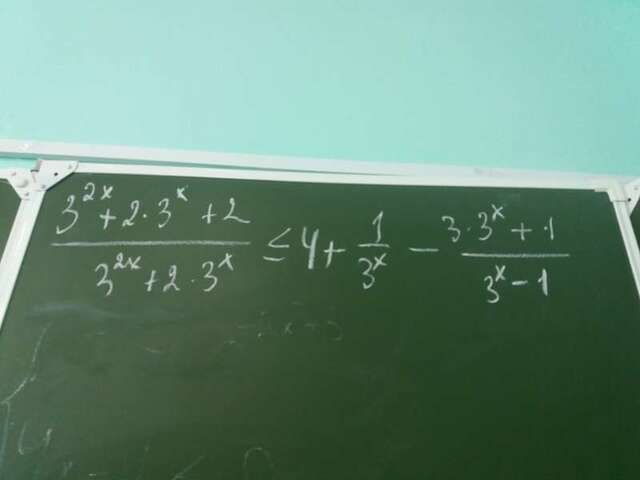 (3^(2x) + 2·3^x + 2)/(3^(2x) + 2·3^x) ≤ 4 + 1/3^x − (3·3^x + 1)/(3^x − 1)